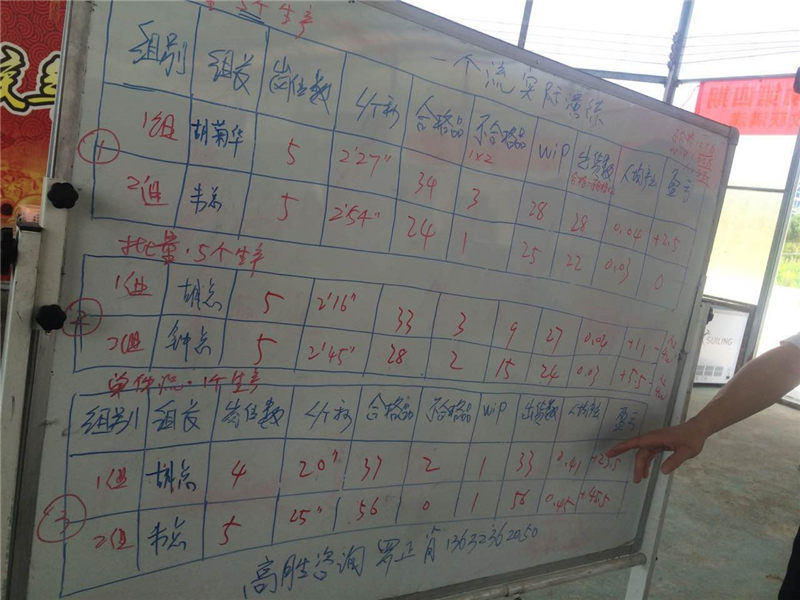 5个生产
一个流实际演练
组别 组长 岗位数 4个秒 合格品 不合格品 WIP 出货数 人均产出 盈亏
1×2
① 1组 胡菊华 5 2'27" 34 3 28 28 0.04 +2.5
2组 韦总 5 2'54" 24 1 25 22 0.03 0
批量·5个生产
② 1组 胡总 5 2'16" 33 3 9 27 0.04 +1.1
2组 钟总 5 2'45" 28 2 15 24 0.03 +5.5
单件流·1个生产
组别 组长 岗位数 4个秒 合格品 不合格品 WIP 出货数 人均产出 盈亏
③ 1组 胡总 4 20" 37 2 1 33 0.41 +23.5
2组 韦总 5 25" 56 0 1 56 0.45 +45.5
高胜咨询 罗正肖 13632362050
SUILING